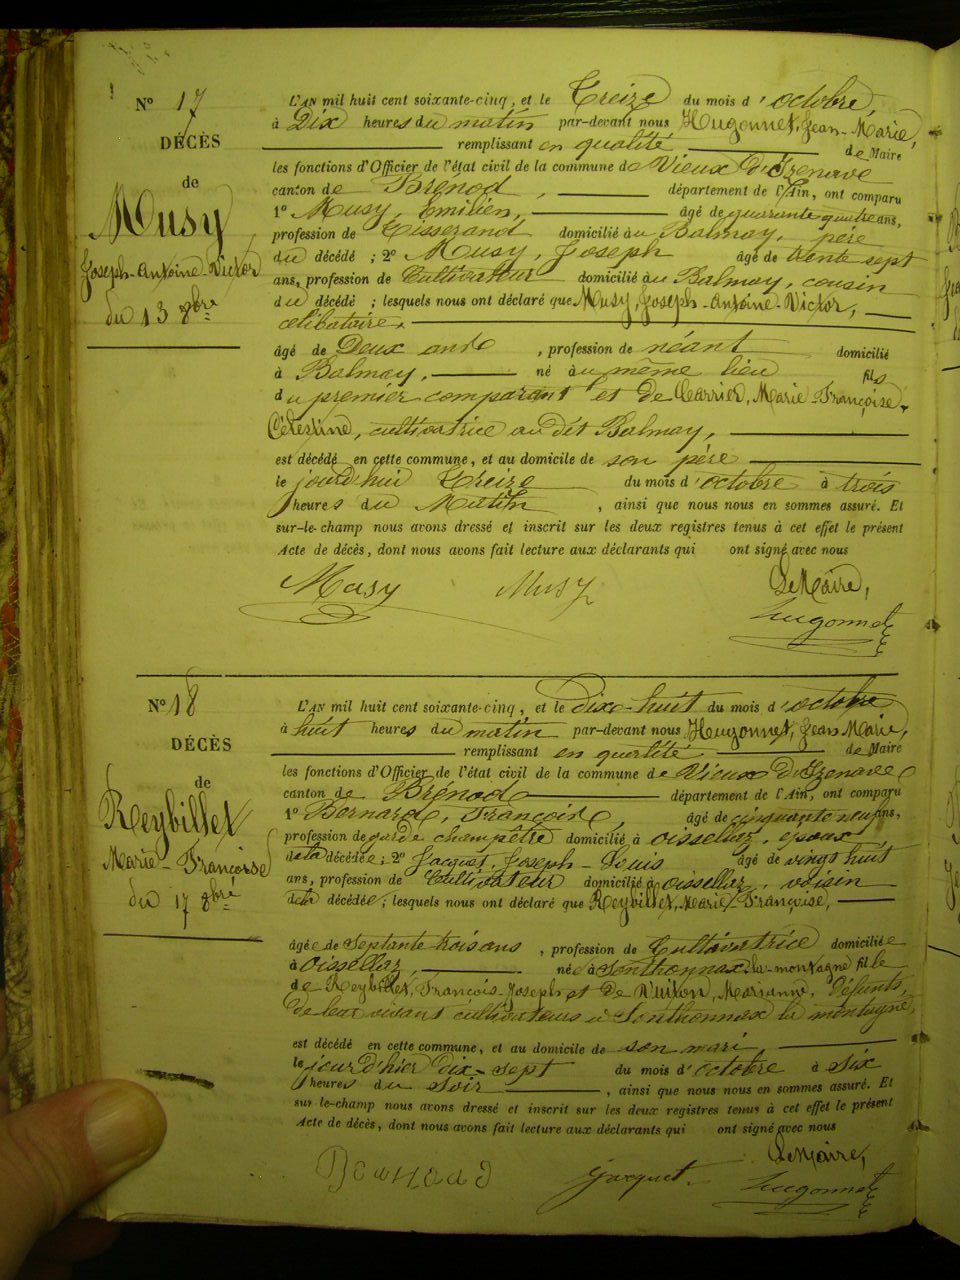 N° 17
DÉCÈS
de
Musy
Joseph-Antoine-Victor
du 13 8bre
L'AN mil huit cent soixante-cinq, et le Treize du mois d'octobre,
à Dix heures du matin par-devant nous Hugonnet, Jean-Marie,
remplissant en qualité de Maire
les fonctions d'Officier de l'état civil de la commune de Vieux d'Izenave
canton de Brénod, département de l'Ain, ont comparu
1° Musy, Emilien, âgé de quarante quatre ans,
profession de Tisserand domicilié au Balmay, père
du décédé ; 2° Musy, Joseph âgé de trente sept
ans, profession de Cultivateur domicilié au Balmay, cousin
du décédé ; lesquels nous ont déclaré que Musy, Joseph-Antoine-Victor,
célibataire,
âgé de Deux ans , profession de néant domicilié
à Balmay, né au même lieu fils
du premier comparant et de Carrier, Marie Françoise-
Célestine, cultivatrice au dit Balmay,
est décédé en cette commune, et au domicile de son père
le jourd'hui Treize du mois d'octobre à trois
heures du Matin , ainsi que nous nous en sommes assuré. Et
sur-le-champ nous avons dressé et inscrit sur les deux registres tenus à cet effet le présent
Acte de décès, dont nous avons fait lecture aux déclarants qui ont signé avec nous
Musy Musy Le Maire,
Hugonnet
N° 18
DÉCÈS
de
Reybillet
Marie-Françoise
du 17 8bre
L'AN mil huit cent soixante-cinq, et le dix-huit du mois d'octobre
à huit heures du matin par-devant nous Hugonnet, Jean Marie,
remplissant en qualité de Maire
les fonctions d'Officier de l'état civil de la commune de Vieux d'Izenave
canton de Brénod département de l'Ain, ont comparu
1° Bernard, François, âgé de cinquante neuf ans,
profession de garde champêtre domicilié à oissellaz, époux
de la décédée ; 2° Jacquet, Joseph-Louis âgé de vingt huit
ans, profession de Cultivateur domicilié à oissellaz, voisin
de la décédée ; lesquels nous ont déclaré que Reybillet, Marie-Françoise,
âgée de Septante trois ans , profession de Cultivatrice domiciliée
à Oissellaz, née à Sonthonnax-la-montagne fille
de Reybillet, François-Joseph et de Marianne, Défunts,
de leur vivant cultivateurs à Sonthonnax la montagne,
est décédé en cette commune, et au domicile de son mari,
le jourd'hier dix-sept du mois d'octobre à Six
heures du Soir , ainsi que nous nous en sommes assuré. Et
sur le-champ nous avons dressé et inscrit sur les deux registres tenus à cet effet le présent
Acte de décès, dont nous avons fait lecture aux déclarants qui ont signé avec nous
Bernard Jacquet. Le Maire,
Hugonnet